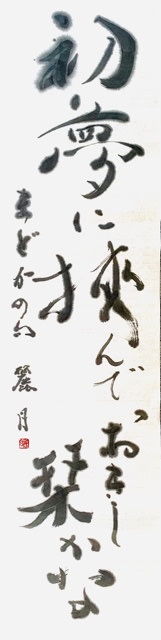 初夢に
挟んでおきし
栞かな
まどかの句 麗月